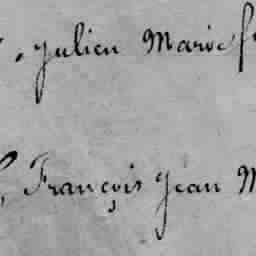 Julien Marie
François Jean